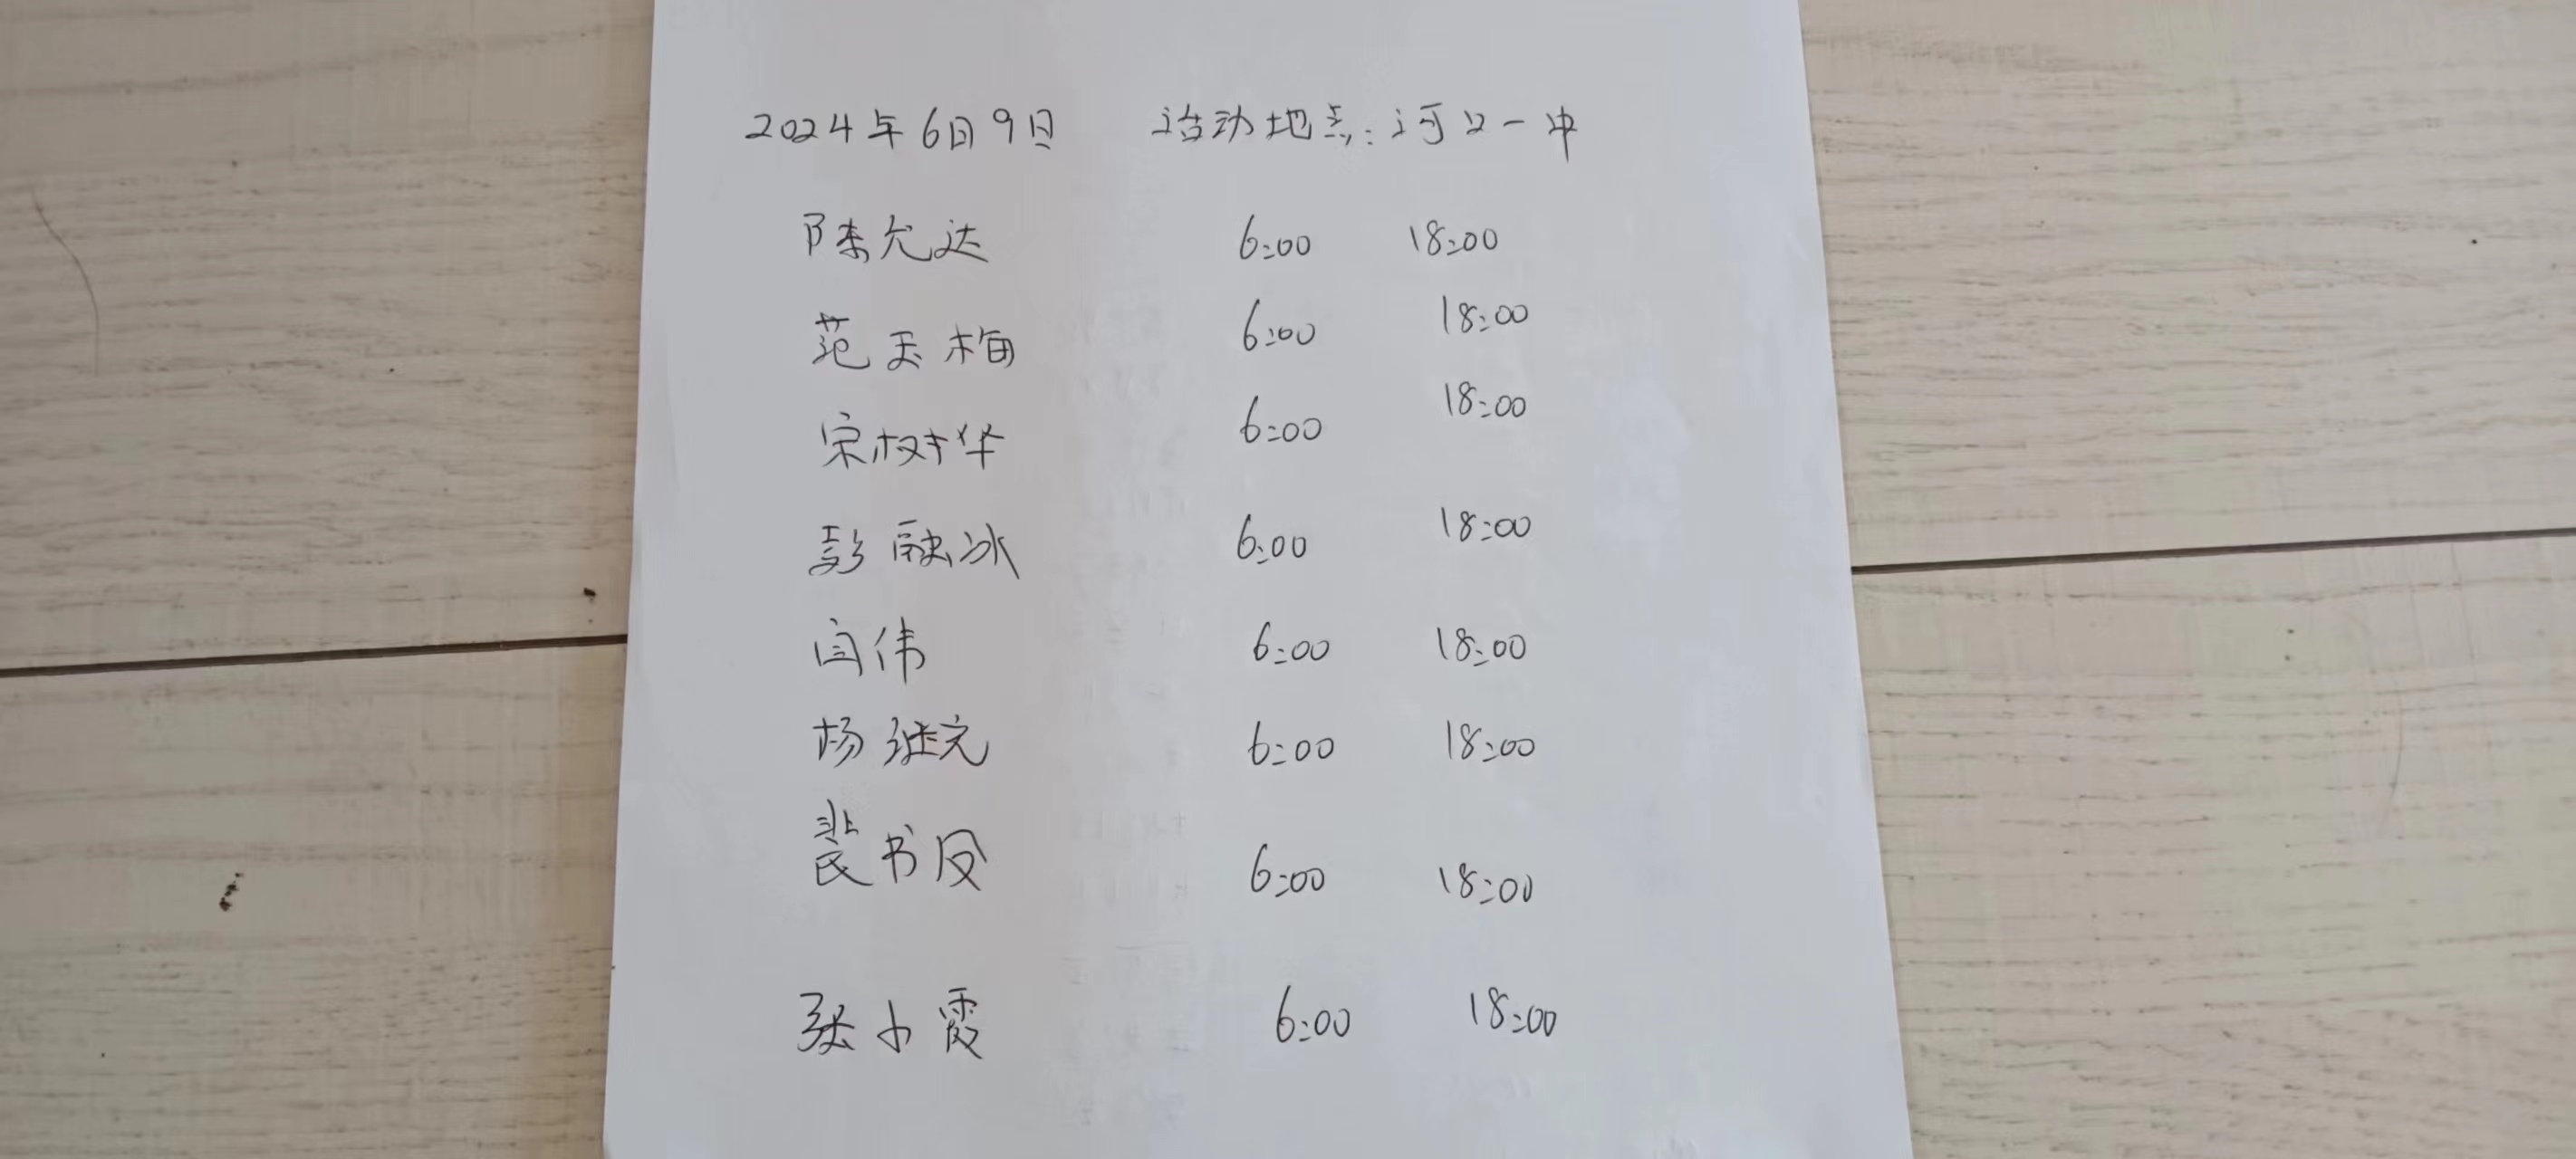 2024年6月9日 活动地点:河口一中
陈允达 6:00 18:00
范玉梅 6:00 18:00
宋树华 6:00 18:00
彭融冰 6:00 18:00
闫伟 6:00 18:00
杨继元 6:00 18:00
裴书凤 6:00 18:00
张小霞 6:00 18:00